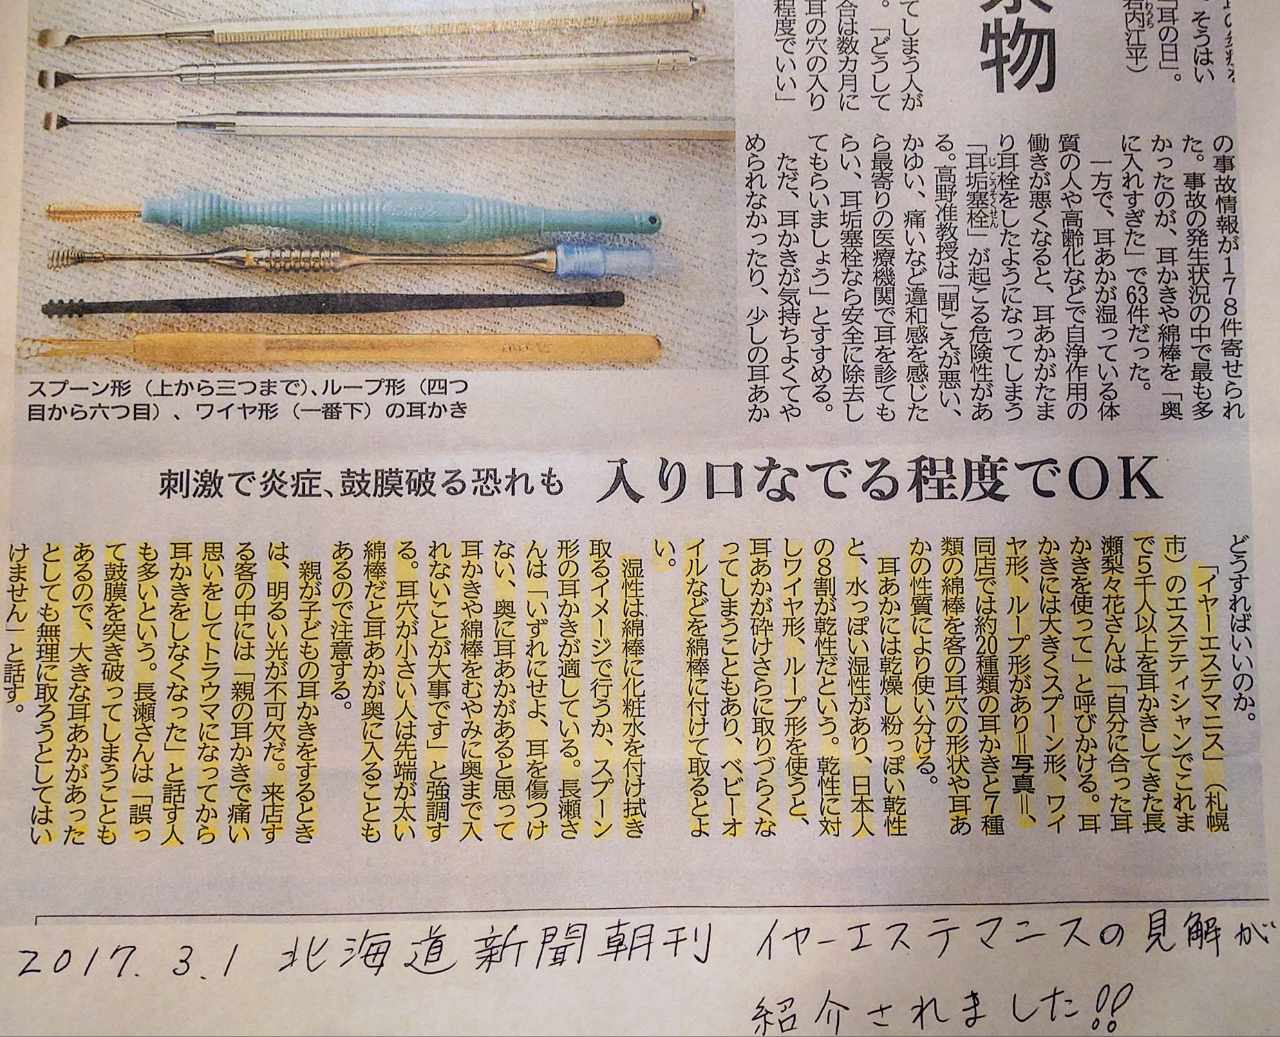 そうはい
「耳の日」。
岩内江平）
物
てしまう人が
。「どうして
合は数カ月に
耳の穴の入り
程度でいい」
の事故情報が178件寄せられ
た。事故の発生状況の中で最も多
かったのが、耳かきや綿棒を「奥
に入れすぎた」で63件だった。
一方で、耳あかが湿っている体
質の人や高齢化などで自浄作用の
働きが悪くなると、耳あかがたま
り耳栓をしたようになってしまう
「耳垢塞栓」が起こる危険性があ
る。高野准教授は「聞こえが悪い、
かゆい、痛いなど違和感を感じた
ら最寄りの医療機関で耳を診ても
らい、耳垢塞栓なら安全に除去し
てもらいましょう」とすすめる。
ただ、耳かきが気持ちよくてや
められなかったり、少しの耳あか
スプーン形（上から三つまで）、ループ形（四つ
目から六つ目）、ワイヤ形（一番下）の耳かき
刺激で炎症、鼓膜破る恐れも
入り口なでる程度でOK
どうすればいいのか。
「イヤーエステマニス」（札幌
市）のエステティシャンでこれま
で5千人以上を耳かきしてきた長
瀬梨々花さんは「自分に合った耳
かきを使って」と呼びかける。耳
かきには大きくスプーン形、ワイ
ヤ形、ループ形があり＝写真＝、
同店では約20種類の耳かきと7種
類の綿棒を客の耳穴の形状や耳あ
かの性質により使い分ける。
耳あかには乾燥し粉っぽい乾性
と、水っぽい湿性があり、日本人
の8割が乾性だという。乾性に対
しワイヤ形、ループ形を使うと、
耳あかが砕けさらに取りづらくな
ってしまうこともあり、ベビーオ
イルなどを綿棒に付けて取るとよ
い。
湿性は綿棒に化粧水を付け拭き
取るイメージで行うか、スプーン
形の耳かきが適している。長瀬さ
んは「いずれにせよ、耳を傷つけ
ない、奥に耳あかがあると思って
耳かきや綿棒をむやみに奥まで入
れないことが大事です」と強調す
る。耳穴が小さい人は先端が太い
綿棒だと耳あかが奥に入ることも
あるので注意する。
親が子どもの耳かきをするとき
は、明るい光が不可欠だ。来店す
る客の中には「親の耳かきで痛い
思いをしてトラウマになってから
耳かきをしなくなった」と話す人
も多いという。長瀬さんは「誤っ
て鼓膜を突き破ってしまうことも
あるので、大きな耳あかがあった
としても無理に取ろうとしてはい
けません」と話す。
2017.3.1 北海道新聞朝刊 イヤーエステマニスの見解が
紹介されました!!